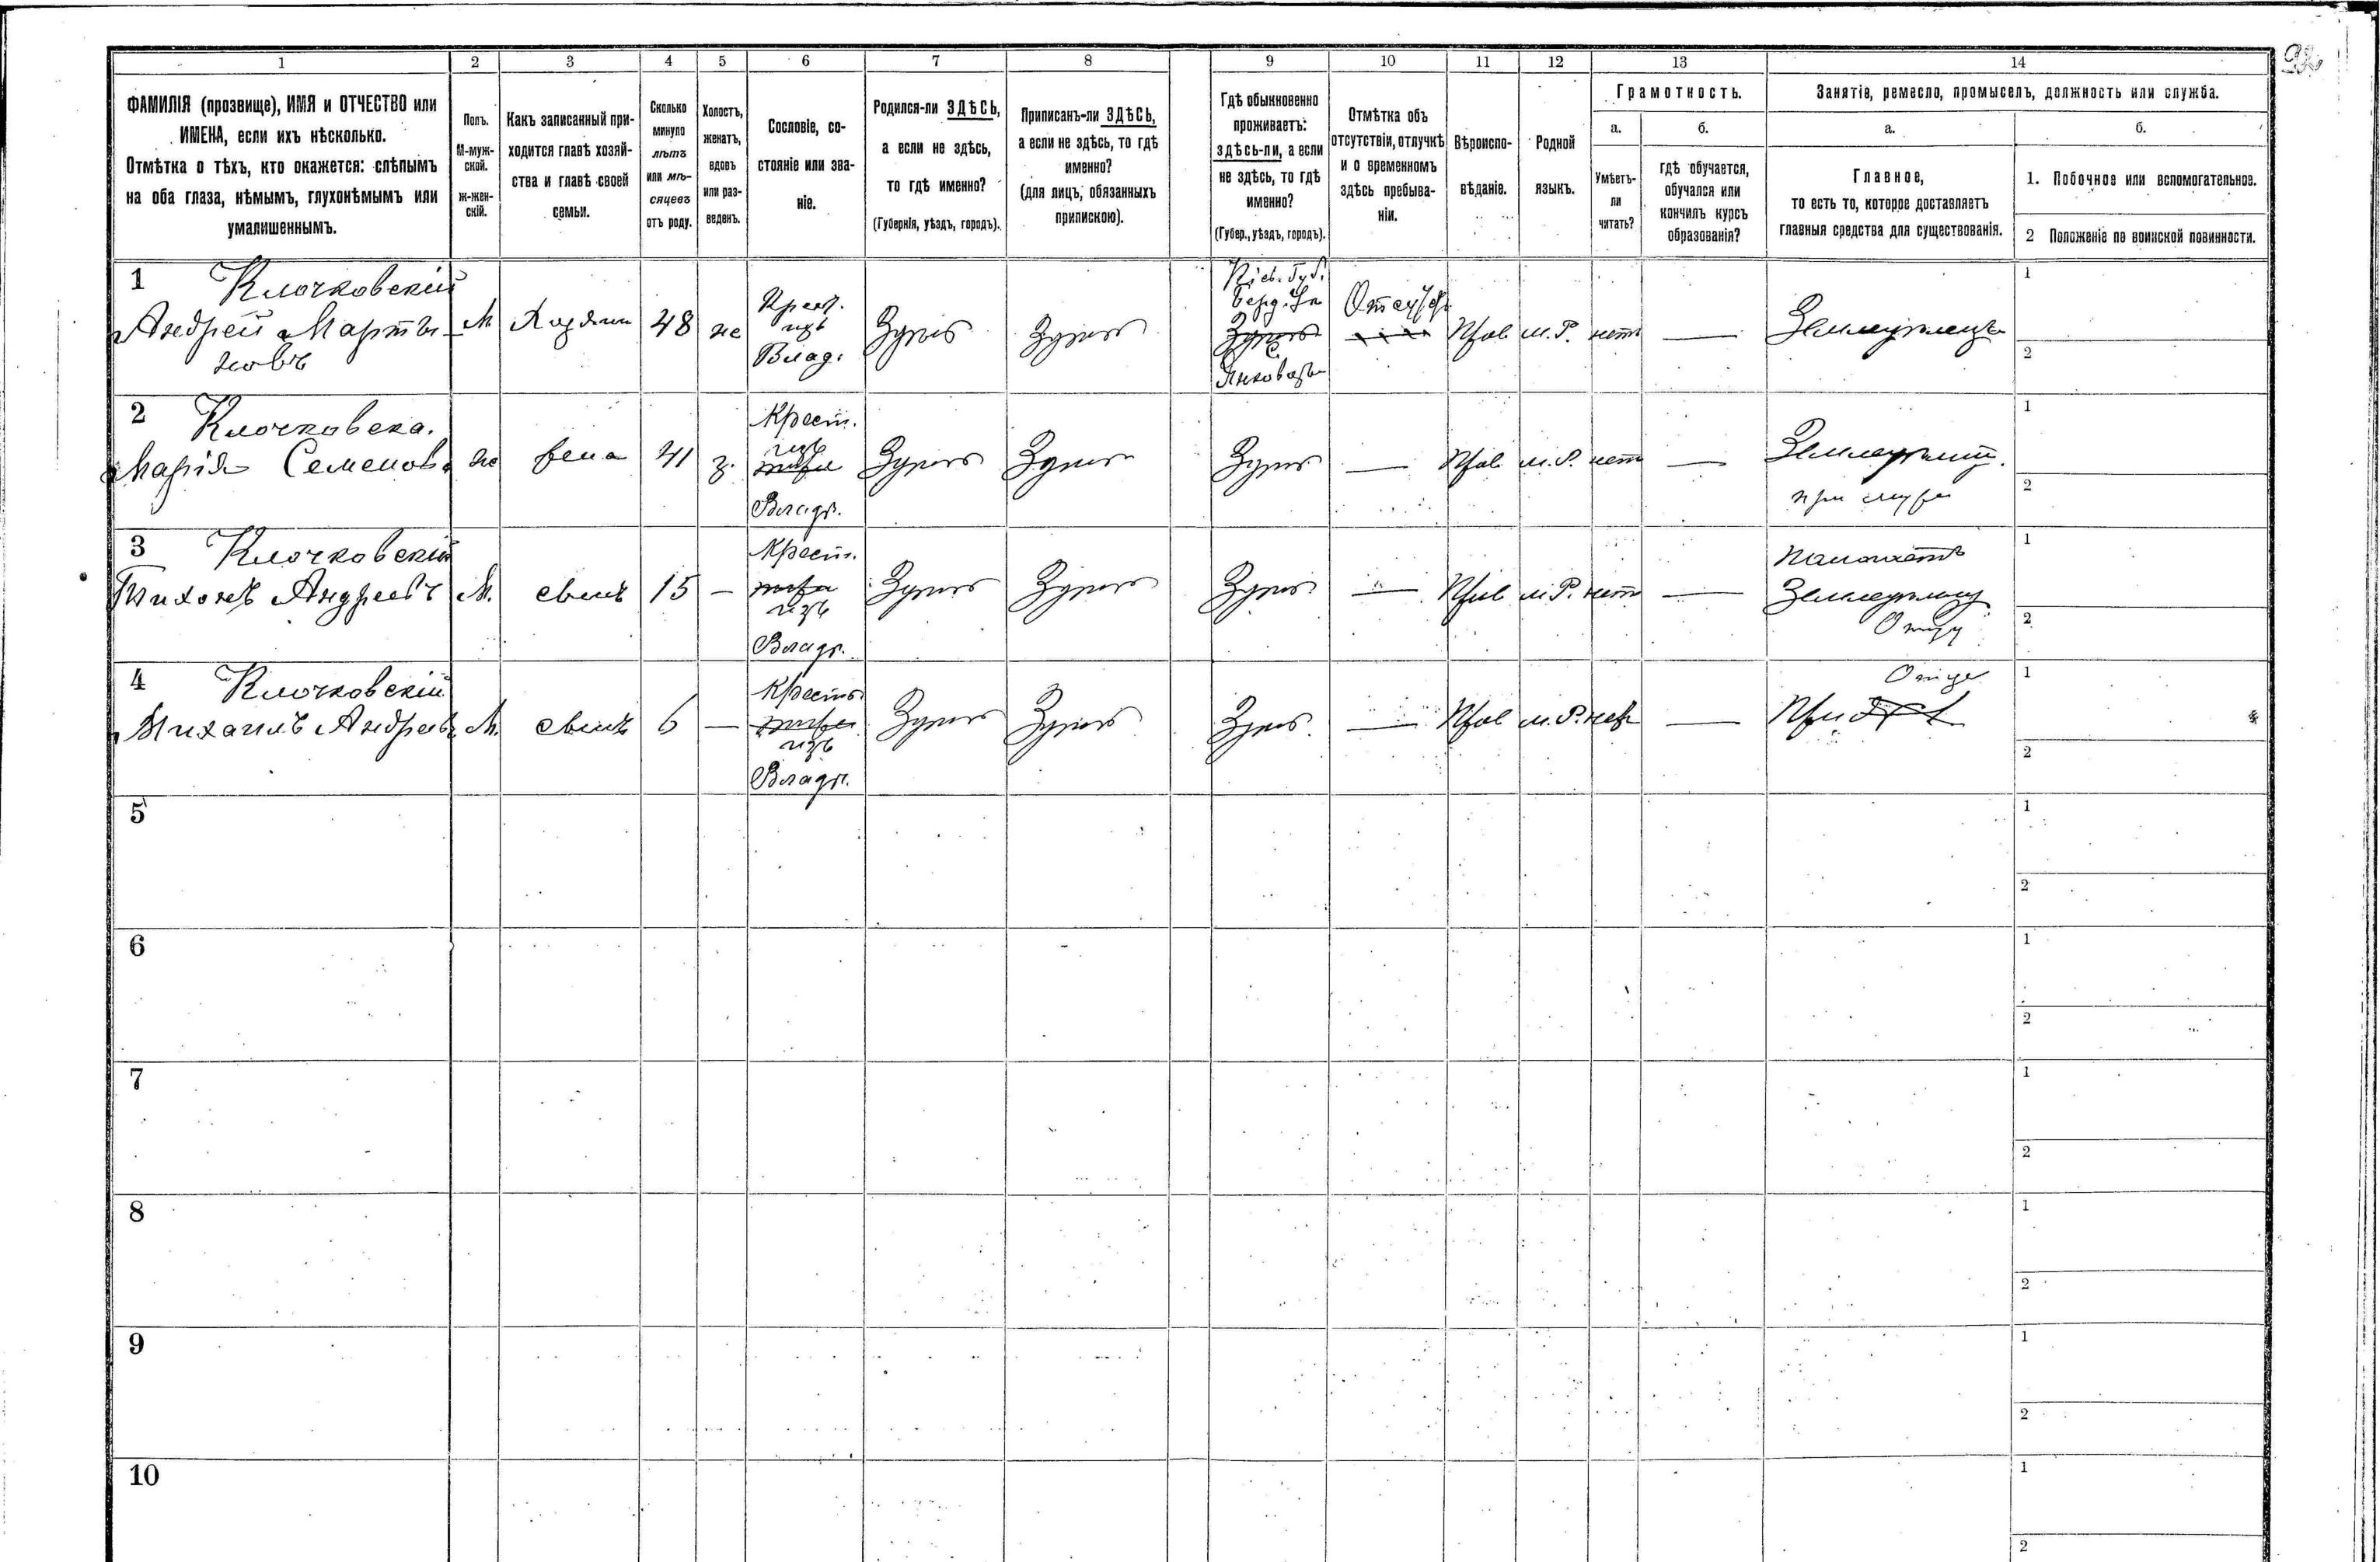 1 2 3 4 5 6 7 8 9 10 11 12 13 14
ФАМИЛІЯ (прозвище), ИМЯ и ОТЧЕСТВО или
ИМЕНА, если ихъ нѣсколько.
Отмѣтка о тѣхъ, кто окажется: слѣпымъ
на оба глаза, нѣмымъ, глухонѣмымъ или
умалишеннымъ.
Полъ.
М-муж-
ской.
Ж-жен-
скій.
Какъ записанный при-
ходится главѣ хозяй-
ства и главѣ своей
семьи.
Сколько
минуло
лѣтъ
или мѣ-
сяцевъ
отъ роду.
Холостъ,
женатъ,
вдовъ
или раз-
веденъ.
Сословіе, со-
стояніе или зва-
ніе.
Родился-ли ЗДѢСЬ,
а если не здѣсь,
то гдѣ именно?
(Губернія, уѣздъ, городъ).
Приписанъ-ли ЗДѢСЬ,
а если не здѣсь, то гдѣ
именно?
(для лицъ, обязанныхъ
припискою).
Гдѣ обыкновенно
проживаетъ:
здѣсь-ли, а если
не здѣсь, то гдѣ
именно?
(Губер., уѣздъ, городъ).
Отмѣтка объ
отсутствіи, отлучкѣ
и о временномъ
здѣсь пребыва-
ніи.
Вѣроиспо-
вѣданіе.
Родной
языкъ.
Грамотность.
а.
Умѣетъ-
ли
читать?
б.
гдѣ обучается,
обучался или
кончилъ курсъ
образованія?
Занятіе, ремесло, промыселъ, должность или служба.
а.
Главное,
то есть то, которое доставляетъ
главныя средства для существованія.
б.
1. Побочное или вспомогательное.
2 Положеніе по воинской повинности.
1 Клочковскій
Андрей Марты-
новъ
М Хозяинъ 48 же
Крест.
изъ
Влад.
Здѣсь Здѣсь
Кіев. Губ.
Берд. Уѣ
Здѣсь
с.
Отсутс
Прав м. Р. нетъ —
Земледѣлецъ
1
2
2 Клочковска.
Марія Семенова
же жена 41 з.
Крест.
изъ
Владѣ.
Здѣсь Здѣсь Здѣсь — Прав м. Р. нетъ —
Земледѣлец.
при мужѣ
1
2
3 Клочковскій
Тихонъ Андреевъ
М. сынъ 15 —
Крест.
изъ
Владѣ.
Здѣсь Здѣсь Здѣсь — Прав м. Р. нетъ —
Помогаетъ
Земледѣльцу
Отцу
1
2
4 Клочковскій
Михаилъ Андреевъ
М. сынъ 6 —
Крестъ
изъ
Владѣ.
Здѣсь Здѣсь Здѣсь — Прав м. Р. нет —
Отце
При
1
2
5
1
2
6
1
2
7
1
2
8
1
2
9
1
2
10
1
2